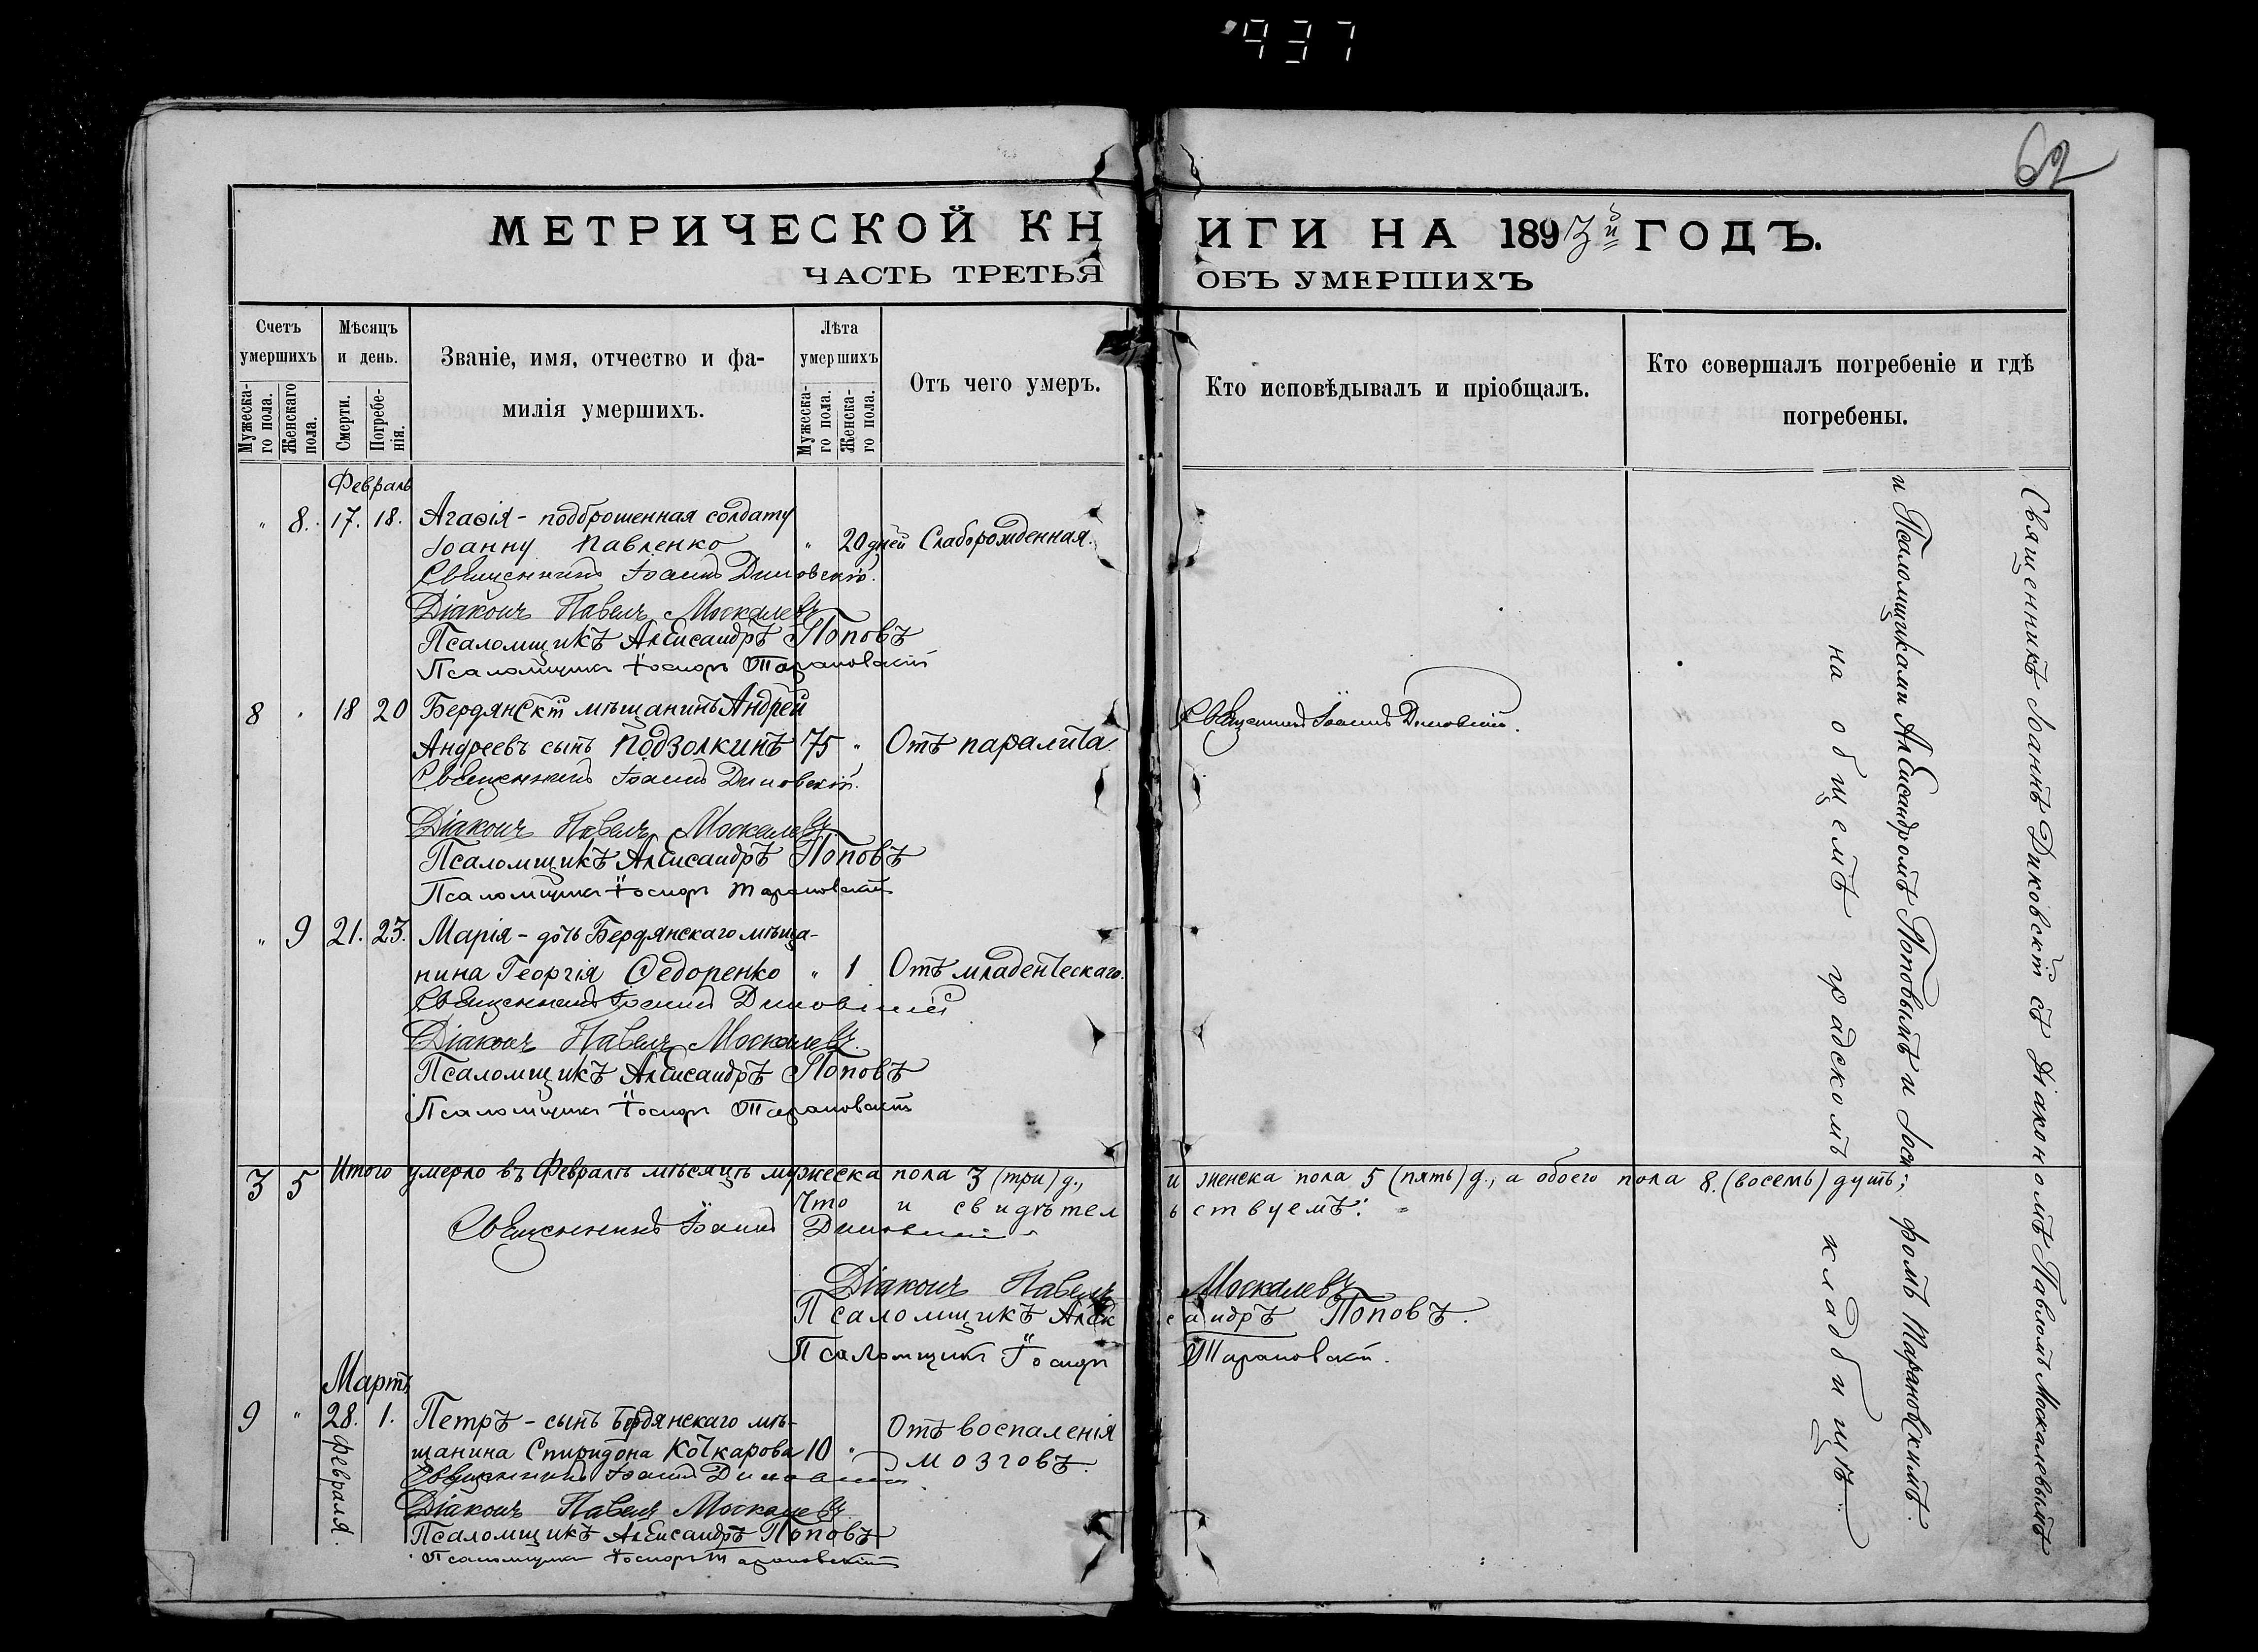 937
62
МЕТРИЧЕСКОЙ КНИГИ НА 1893й ГОДЪ.
ЧАСТЬ ТРЕТЬЯ ОБЪ УМЕРШИХЪ
Счетъ умершихъ
Мужеска-го пола.
Женскаго пола.
Мѣсяцъ и день.
Смерти.
Погребе-нія.
Званіе, имя, отчество и фа-
милія умершихъ.
Лѣта умершихъ
Мужеска-го пола.
Женска-го пола.
Отъ чего умеръ.
Кто исповѣдывалъ и пріобщалъ.
Кто совершалъ погребеніе и гдѣ
погребены.
Февраль
" 8. 17. 18. Агаѳія - подброшенная солдату
Іоанну Павленко " 20 дней Слаборожденная.
Священникъ Іоаннъ Диковскій.
Діаконъ Павелъ Москалевъ
Псаломщикъ Александръ Поповъ
Псаломщикъ Іосифъ Тарановскій
8 " 18 20 Бердянскій мѣщанинъ Андрей
Андреевъ сынъ Подзолкинъ 75 " Отъ паралича.
Священникъ Іоаннъ Диковскій.
Священникъ Іоаннъ Диковскій.
Діаконъ Павелъ Москалевъ
Псаломщикъ Александръ Поповъ
Псаломщикъ Іосифъ Тарановскій
" 9 21. 23. Марія - дочь Бердянскаго мѣща-
нина Георгія Ѳедоренко " 1 Отъ младенческаго.
Священникъ Іоаннъ Диковскій
Діаконъ Павелъ Москалевъ
Псаломщикъ Александръ Поповъ
Псаломщикъ Іосифъ Тарановскій
3 5 Итого умерло въ Февралѣ мѣсяцѣ мужеска пола 3 (три) д., и женска пола 5 (пять) д., а обоего пола 8. (восемь) душъ;
Что и свидѣтельствуемъ:
Священникъ Іоаннъ Диковскій
Діаконъ Павелъ Москалевъ
Псаломщикъ Александръ Поповъ.
Псаломщикъ Іосифъ Тарановскій.
Мартъ
9 " 28. Февраля. 1. Петръ - сынъ Бердянскаго мѣ-
щанина Спиридона Кочкарова 10 " Отъ воспаленія
мозговъ.
Священникъ Іоаннъ Диковскій
Діаконъ Павелъ Москалевъ
Псаломщикъ Александръ Поповъ
Псаломщикъ Іосифъ Тарановскій
Священникъ Іоаннъ Диковскій съ Діакономъ Павломъ Москалевымъ
и Псаломщиками Александромъ Поповымъ и Іосифомъ Тарановскимъ.
на общемъ градскомъ кладбищѣ.